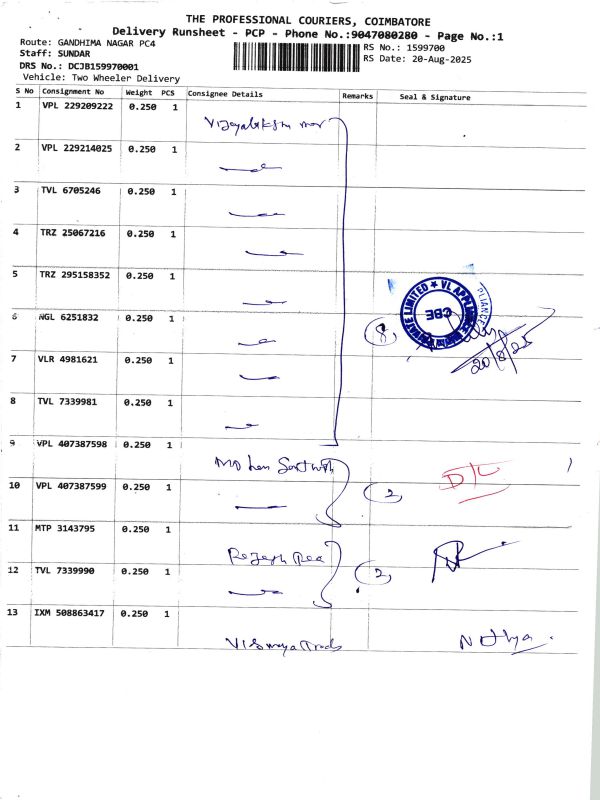 THE PROFESSIONAL COURIERS, COIMBATORE
Delivery Runsheet - PCP - Phone No.:9047080280 - Page No.:1
Route: GANDHIMA NAGAR PC4
RS No.: 1599700
Staff: SUNDAR
RS Date: 20-Aug-2025
DRS No.: DCJB159970001
Vehicle: Two Wheeler Delivery
S No Consignment No Weight PCS Consignee Details Remarks Seal & Signature
1 VPL 229209222 0.250 1
2 VPL 229214025 0.250 1
3 TVL 6705246 0.250 1
4 TRZ 25067216 0.250 1
5 TRZ 295158352 0.250 1
6 NGL 6251832 0.250 1
8
VL APPLIANCE PRIVATE LIMITED
CBE
20/8/25
7 VLR 4981621 0.250 1
8 TVL 7339981 0.250 1
9 VPL 407387598 0.250 1
10 VPL 407387599 0.250 1
2
D/C
11 MTP 3143795 0.250 1
12 TVL 7339990 0.250 1
2
13 IXM 508863417 0.250 1